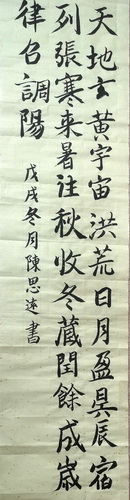 天地玄黃宇宙洪荒日月盈昃辰宿
列張寒来暑往秋收冬藏閏餘成嵗
律召調陽
戊戌冬月陳思遠書